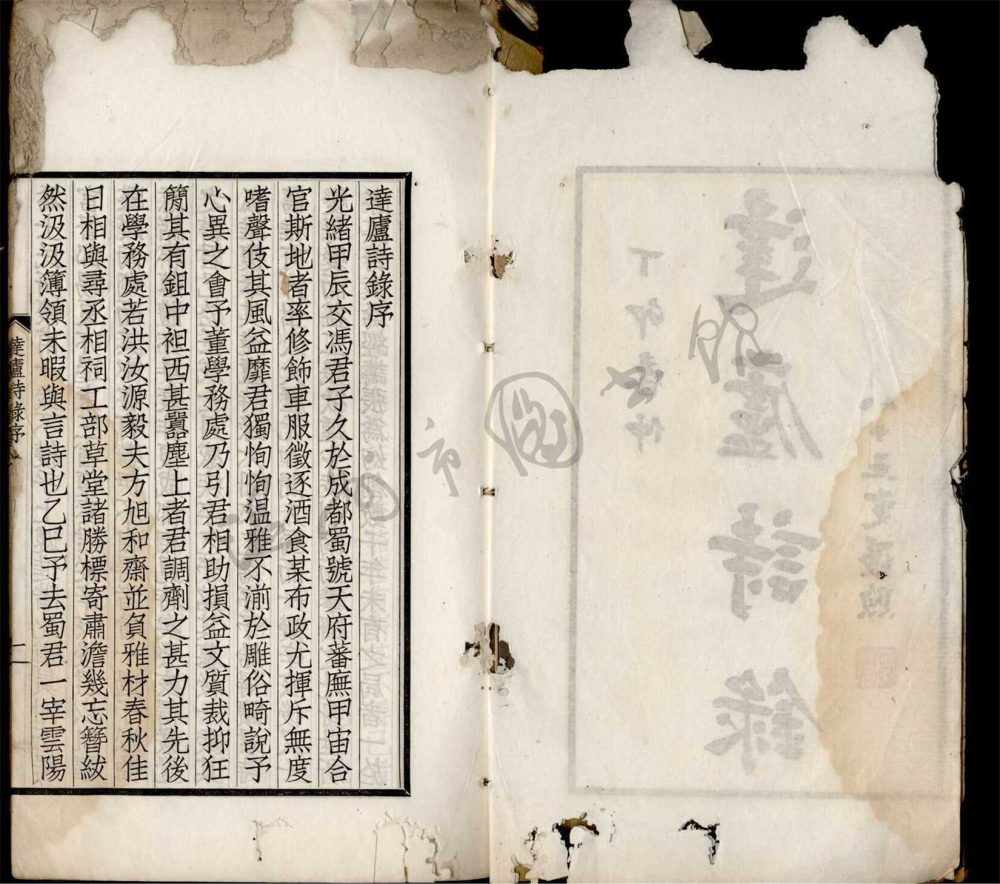 達廬詩錄
丁卯春
達廬詩錄序
光緒甲辰交馮君子久於成都蜀號天府蕃廡甲宙合
官斯地者率修飾車服徵逐酒食某布政尤揮斥無度
嗜聲伎其風益靡君獨恂恂温雅不湔於雕俗畸說予
心異之會予董學務處乃引君相助損益文質裁抑狂
簡其有鉏中袒西甚囂塵上者君調劑之甚力其先後
在學務處若洪汝源毅夫方旭和齋並負雅材春秋佳
日相與尋丞相祠工部草堂諸勝標寄肅澹幾忘簪紱
然汲汲簿領未暇與言詩也乙巳予去蜀君一宰雲陽
達廬詩錄序
一